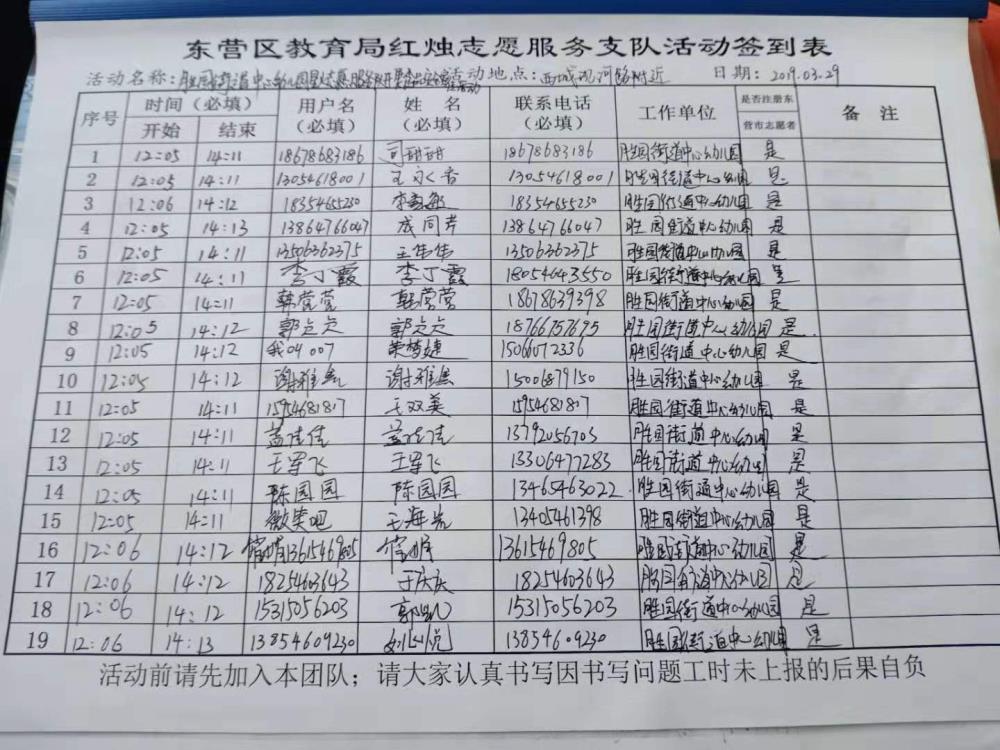 东营区教育局红烛志愿服务支队活动签到表
活动名称：胜园街道中心幼儿园 活动地点：西城 附近 日期：2019.03.29
序号 时间（必填） 用户名（必填） 姓名（必填） 联系电话（必填） 工作单位 是否注册东营市志愿者 备注
开始 结束
1 12:05 14:11 18678683186 司甜甜 18678683186 胜园街道中心幼儿园 是
2 12:05 14:11 13054618001 王永香 13054618001 胜园街道中心幼儿园 是
3 12:06 14:12 18354655230 李敏 18354655230 胜园街道中心幼儿园 是
4 12:05 14:13 13864766047 成同芹 13864766047 胜园街道中心幼儿园 是
5 12:05 14:11 13506362375 王伟伟 13506362375 胜园街道中心幼儿园 是
6 12:05 14:11 李丁霞 李丁霞 18054643650 胜园街道中心幼儿园 是
7 12:05 14:11 韩莹莹 韩莹莹 18678639398 胜园街道中心幼儿园 是
8 12:05 14:12 郭点点 郭点点 18766757695 胜园街道中心幼儿园 是
9 12:05 14:12 我叫007 荣梦婕 15066072336 胜园街道中心幼儿园 是
10 12:05 14:12 谢雅 谢雅 15006879150 胜园街道中心幼儿园 是
11 12:05 14:11 15954681817 王双美 15954681817 胜园街道中心幼儿园 是
12 12:05 14:11 孟佳佳 孟佳佳 13792056703 胜园街道中心幼儿园 是
13 12:05 14:11 王军飞 王军飞 13306477283 胜园街道中心幼儿园 是
14 12:05 14:11 陈园园 陈园园 13465463022 胜园街道中心幼儿园 是
15 12:05 14:11 微笑吧 王海 13405461398 胜园街道中心幼儿园 是
16 12:06 14:12 13615469805 13615469805 胜园街道中心幼儿园 是
17 12:06 14:12 18254603643 于庆庆 18254603643 胜园街道中心幼儿园 是
18 12:06 14:12 15315056203 郭凯 15315056203 胜园街道中心幼儿园 是
19 12:06 14:13 13854609230 刘心悦 13854609230 胜园街道中心幼儿园 是
活动前请先加入本团队；请大家认真书写因书写问题工时未上报的后果自负